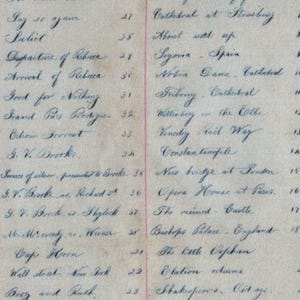 Say so again 27
Juliet 28
Departure of Rebecca 29
Arrival of Rebecca 30
Good for Nothing 31
Grand Pas 32
Edwin Forrest 33
G. V. Brooke 34
presented to Brooke 35
G. V. Brooke as Richard 3d 36
G. V. Brooke as Shylock 37
Mr McCready as Werner 38
Cape Horn 21
Wall street New York 22
Boaz and Ruth 23
Cathedral at Strasburg
About
Segovia Spain
Notre Dame Cathedral
Friburg Cathedral 18
Wittenberg on the Elbe 12
Rail Way
Constantinople
New bridge at London 18
Opera House at Paris 16
The ruined Castle 17
Bishops Palace England 18
The little Orphan
returns
Shakespeare's Old age